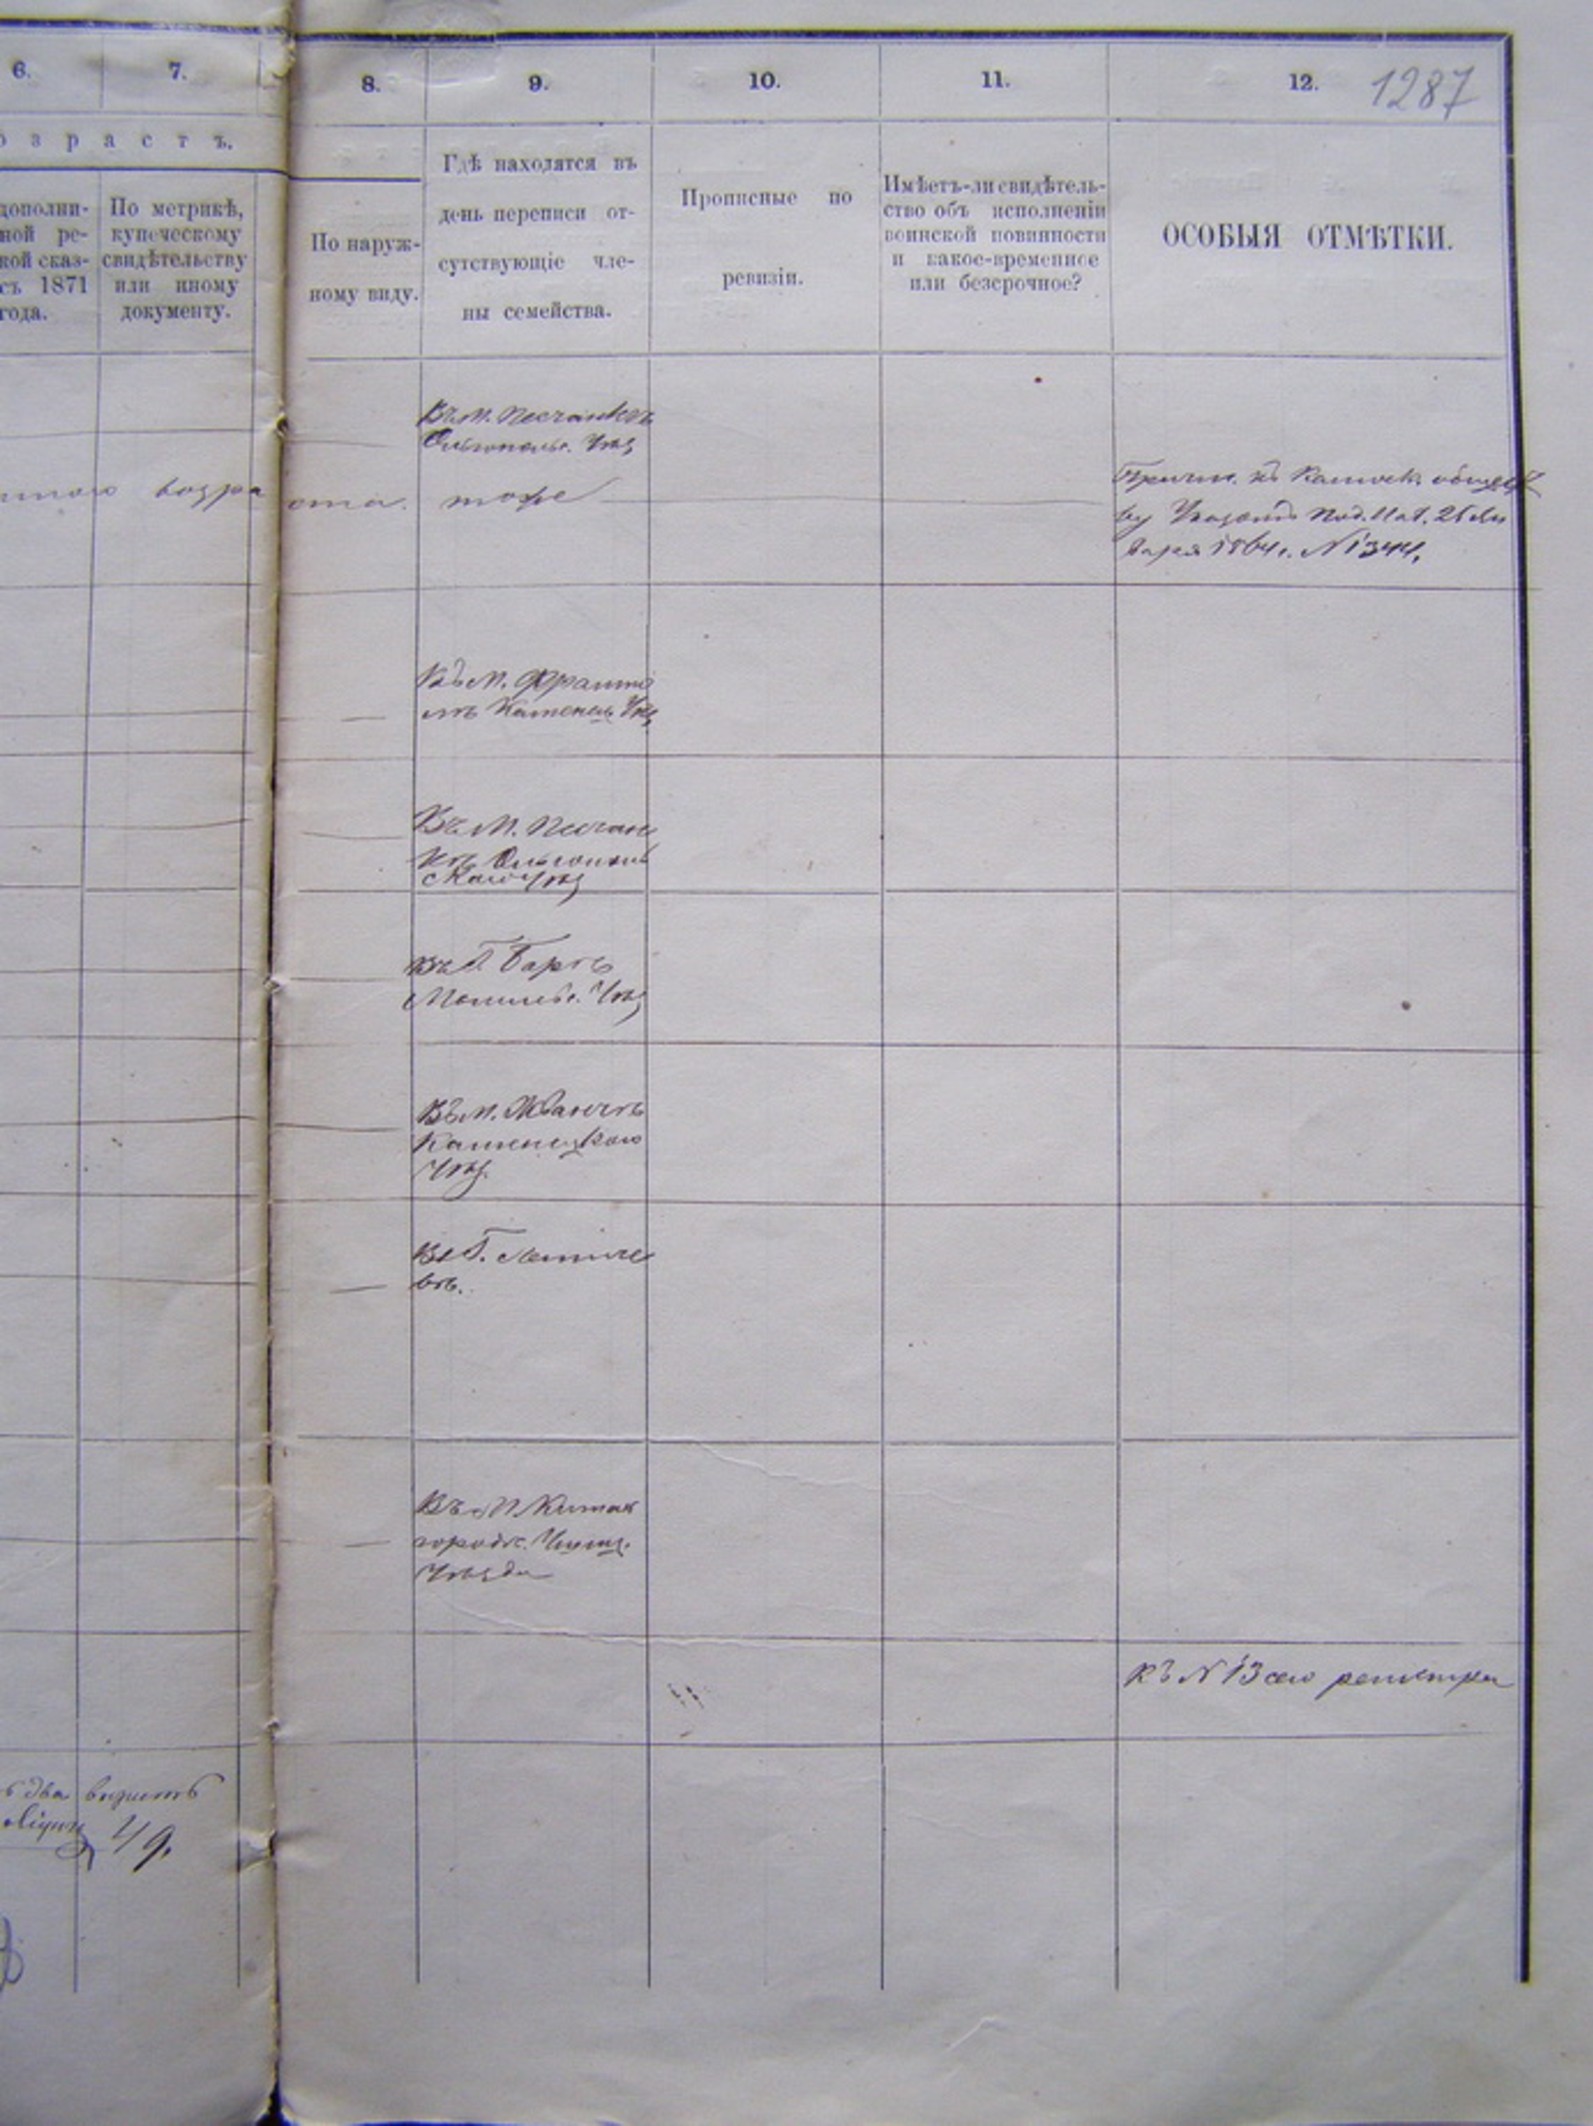 6.
7.
8.
9.
10.
11.
12.
1287
озрастъ.
дополни-
ной ре-
кой сказ-
съ 1871
года.
По метрикѣ,
купеческому
свидѣтельству
или иному
документу.
По наруж-
ному виду.
Гдѣ находятся въ
день переписи от-
сутствующіе чле-
ны семейства.
Прописные по
ревизіи.
Имѣетъ-ли свидѣтель-
ство объ исполненіи
воинской повинности
и какое-временное
или безсрочное?
ОСОБЫЯ ОТМѢТКИ.
Въ м. Песчанкѣ
Ольгопольс. Уѣз
возра ста. тоже
Причис. къ Каменск. общест
ву Указомъ Под. Пал. 26 Ян
варя 1864 г. № 1344.
Въ м. Фрампо
лѣ Каменец. Уѣз
Въ м. Песчан
кѣ Ольгополь
скаго Уѣз
Въ Г. Барѣ
Могилевс. Уѣз
Въ м. Жванчѣ
Каменецкаго
Уѣз.
Въ Г. Летиче
вѣ.
Въ м. Китай
городѣ. Ушиц.
Уѣзда
Къ № 13 сего регистра
два
49.